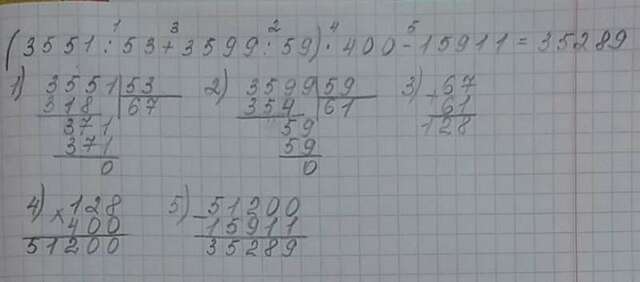 1 3 2 4 5
(3551:53+3599:59)·400-15911=35289
1) 3551 53 2) 3599 59 3) 67
318 67 354 61 + 61
371 59 128
371 59
0 0
4) ×128 5) -51200
400 15911
51200 35289